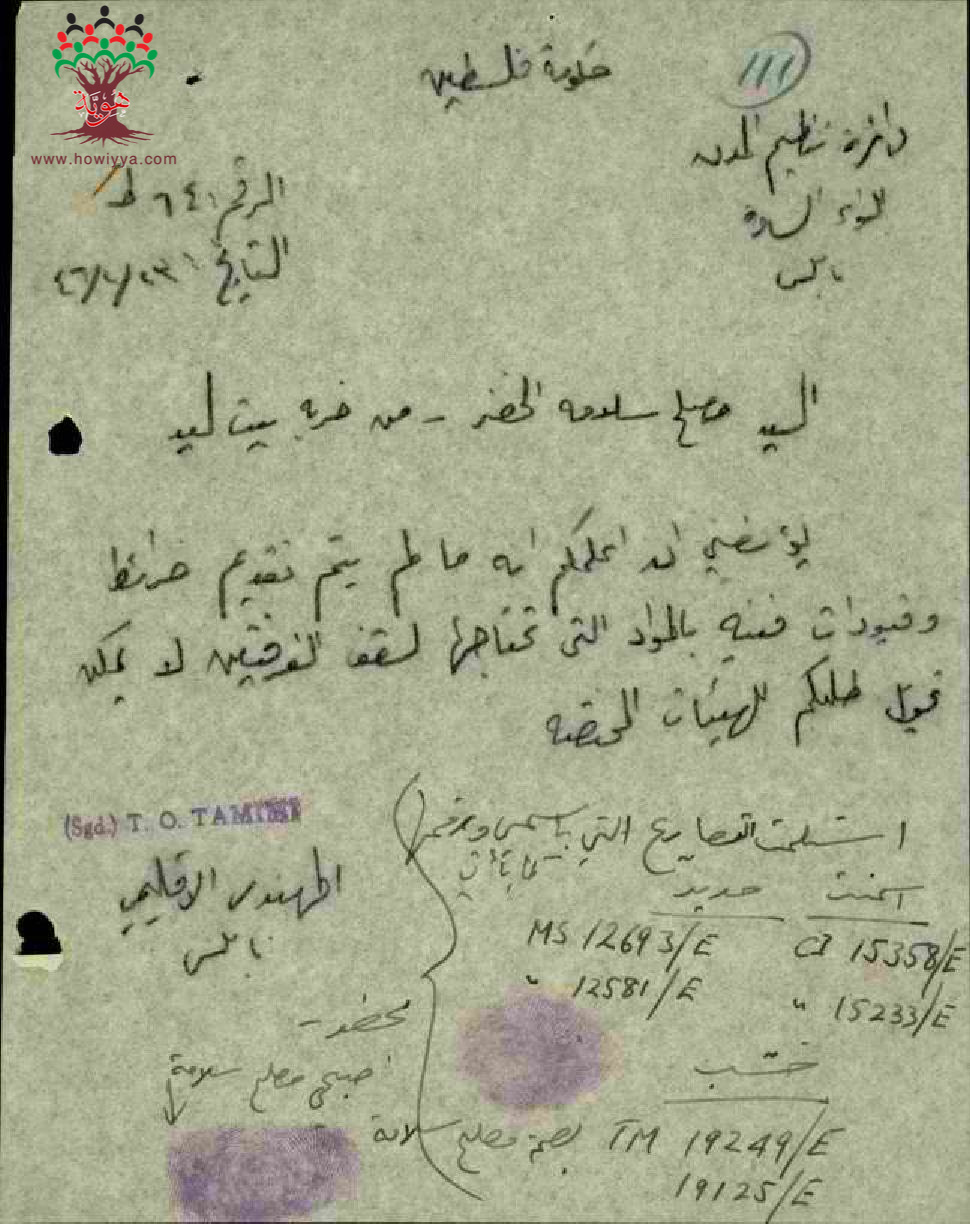 هوية
www.howiyya.com
111
حكومة فلسطين
دائرة تنظيم المدن
لواء السامرة
نابلس
الرقم ٦٤١ ط
التاريخ
السيد مصلح سلامه الخضر - من خربه بيت ليد
يؤسفني ان اعلمكم انه ما لم يتم تقديم خرائط
وقيودات فنيه بالمواد التي تحتاجها لسقف الغرفتين لا يمكن
قبول طلبكم للهيئات المختصه
(Sgd.) T. O. TAMIMI
المهندس الاقليمي
نابلس
استلمت التصاريح التي باسمي
اسمنت حديد
CI 15358/E MS 12693/E
" 15233/E " 12581/E
خشب
TM 19249/E
19125/E
بصمة مصلح سلامة
بحضور
صبحي مصلح سلامة